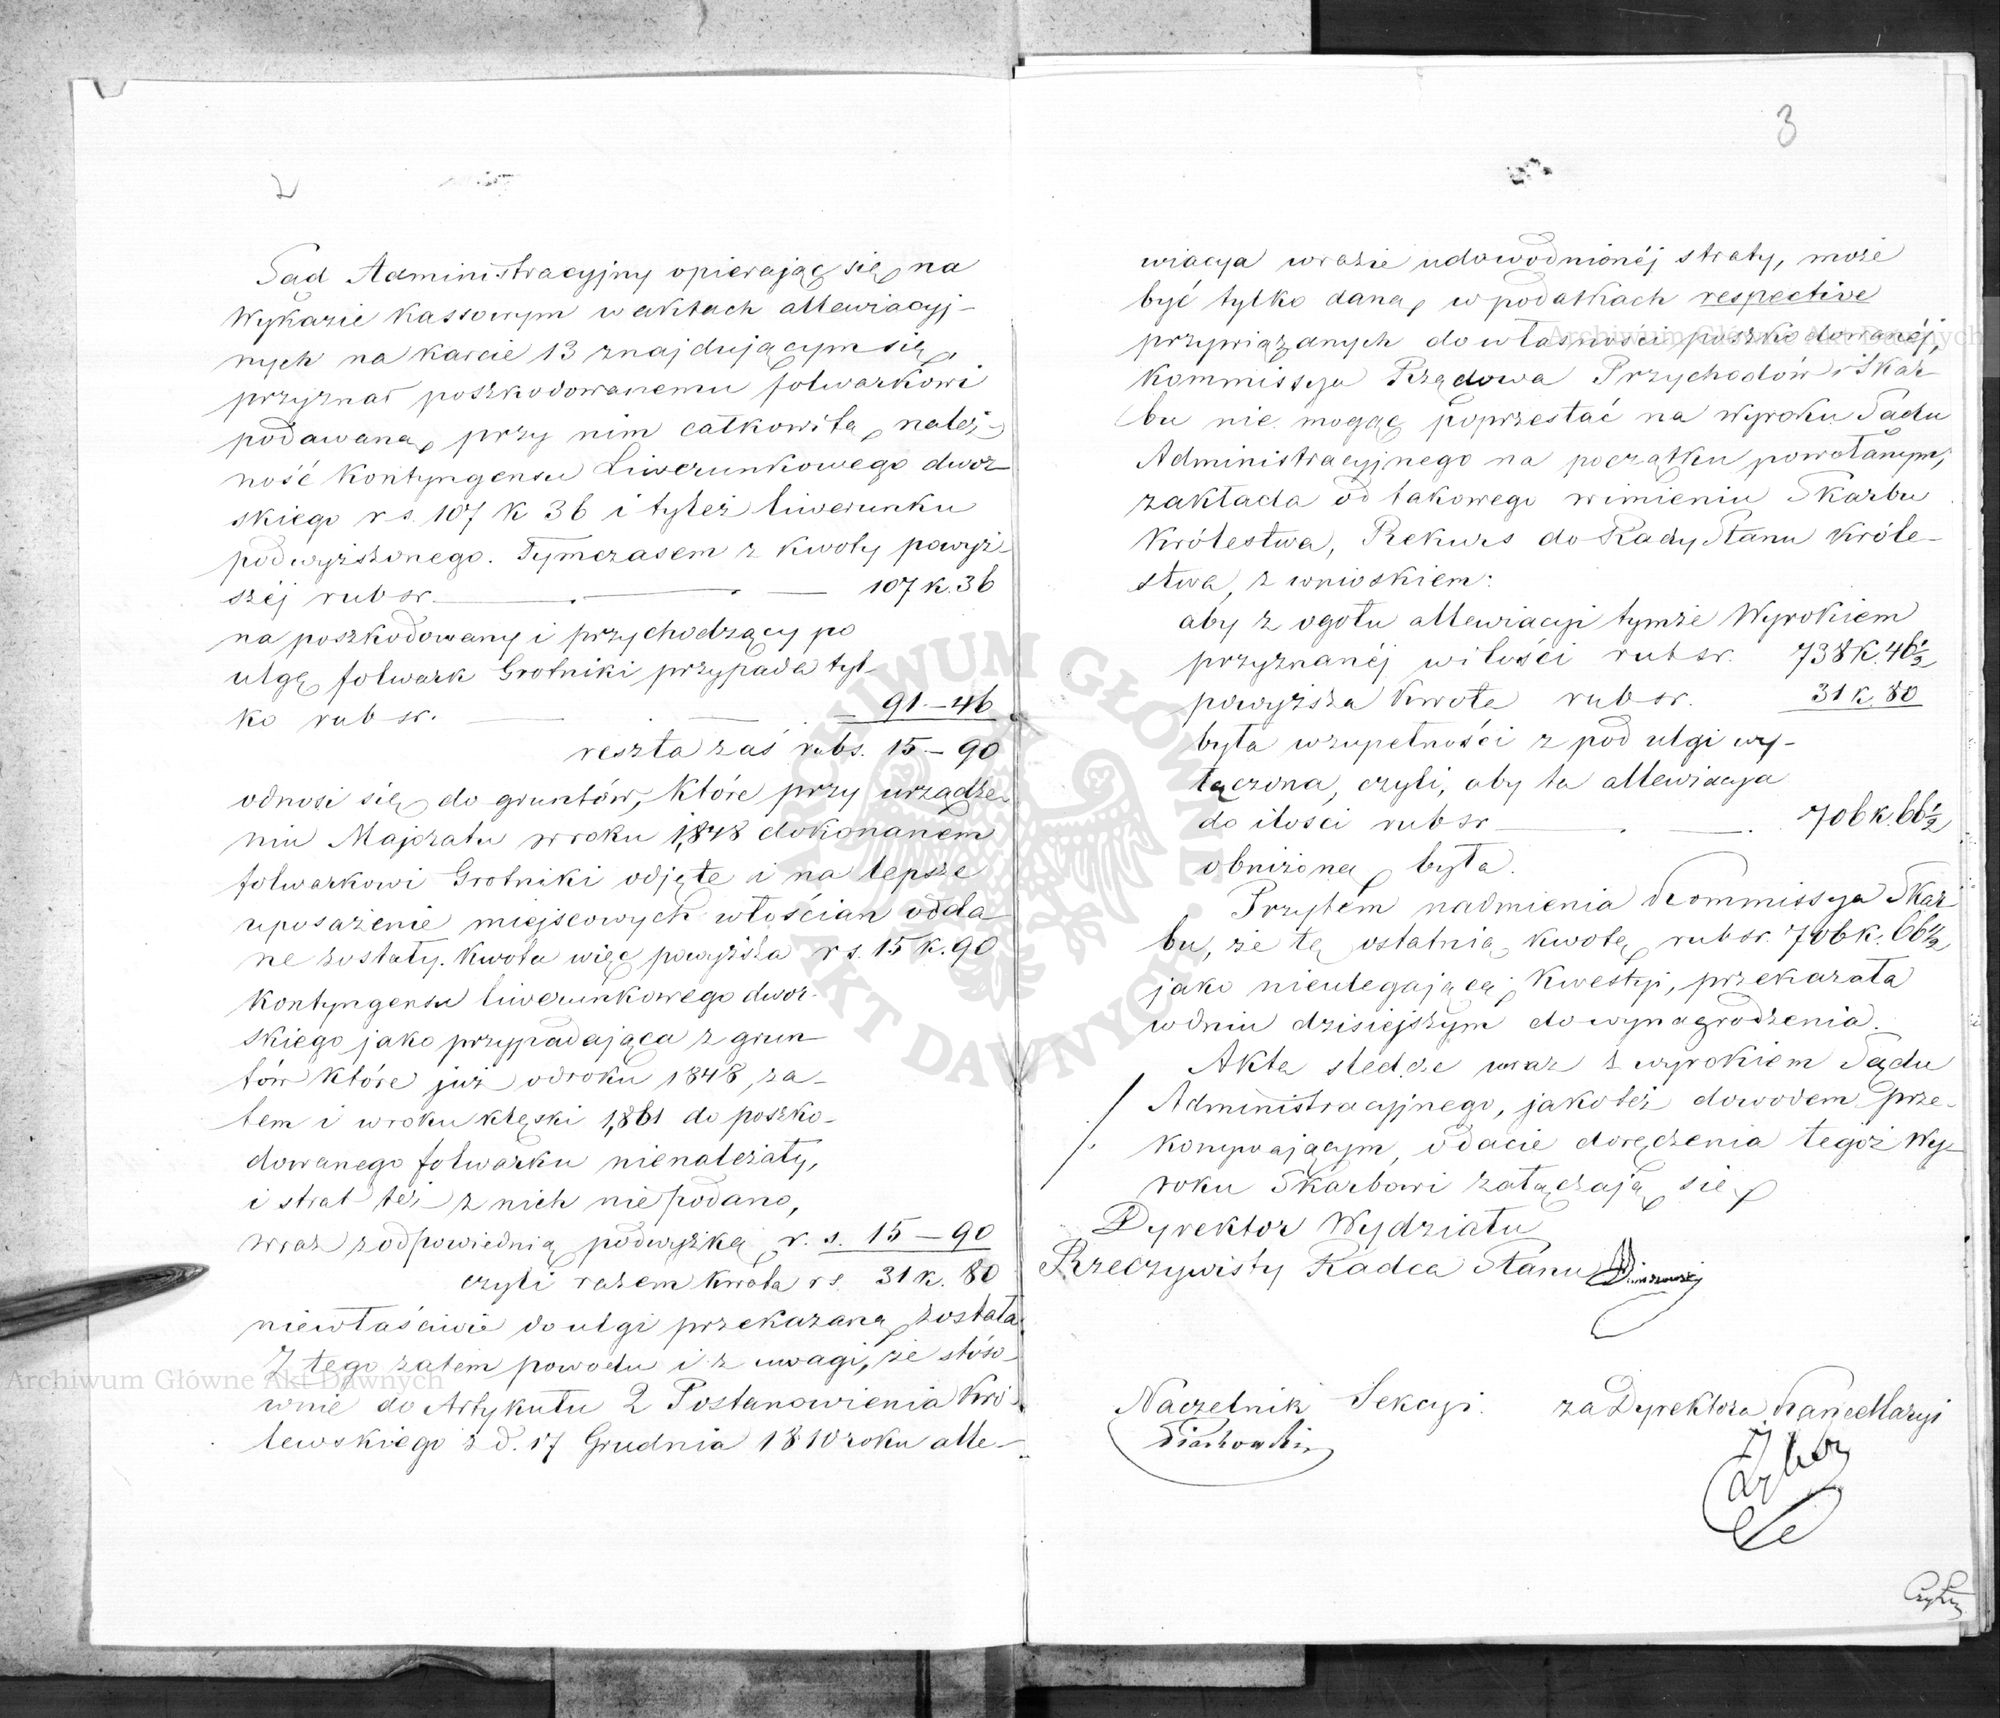 2
Sąd Administracyjny opierając się na
Wykazie kassowym w aktach allewiacyj-
nych na karcie 13 znajdującym się,
przyznał poszkodowanemu folwarkowi
podawaną przy nim całkowitą należ-
ność kontyngensu Liwerunkowego dwor-
skiego rs. 107 k 36 i tyleż liwerunku
podwyższonego. Tymczasem z kwoty powyż-
széj rub sr. — — — 107 k. 36
na poszkodowany i przychodzący po
ulgę folwark Grotniki przypada tyl-
ko rub sr. — — — 91.—46
reszta zaś rubs. 15—90
odnosi się do gruntów, które przy urządze-
niu Majoratu w roku 1848 dokonanem
folwarkowi Grotniki odjęte i na lepsze
uposażenie miejscowych włościan odda-
ne zostały. Kwota więc powyższa rs. 15 k. 90
Kontyngensu liwerunkowego dwor-
skiego jako przypadająca z grun-
tów które już od roku 1848, za-
tem i w roku klęski 1861 do poszko-
dowanego folwarku nienależały,
i strat też z nich nie podano,
wraz z odpowiednią podwyżką r. s. 15—90
czyli razem kwota rs. 31 k. 80
niewłaściwie do ulgi przekazaną została
Z tego zatem powodu i z uwagi, że stóso-
wnie do Artykułu 2 Postanowienia Kró-
lewskiego z d. 17 Grudnia 1810 roku alle-
3
wiacya w razie udowodnionéj straty, może
być tylko daną w podatkach respective
przywiązanych do własności poszkodowanéj,
Kommissya Rządowa Przychodów i Skar-
bu nie mogąc poprzestać na Wyroku Sądu
Administracyjnego na początku powołanym,
zakłada od takowego w imieniu Skarbu
Królestwa, Rekurs do Rady Stanu Króle-
stwa, z wnioskiem:
aby z ogółu allewiacyi tymże Wyrokiem
przyznanéj w ilości rub sr. 738 k. 46½
powyższa kwota rub sr. 31 k. 80
była w zupełności z pod ulgi wy-
łączona, czyli, aby ta allewiacya
do ilości rub sr — — 706 k. 66½
obniżoną była.
Przytém nadmienia Kommissya Skar-
bu, że tę ostatnią kwotę rub sr. 706 k. 66½
jako nieulegającą kwestyi, przekazała
w dniu dzisiejszym do wynagrodzenia.
Akta śledcze wraz z wyrokiem Sądu
Administracyjnego, jakoteż dowodem prze-
konywającym o dacie doręczenia tegoż Wy-
roku Skarbowi załączają się
Dyrektor Wydziału
Rzeczywisty Radca Stanu
Naczelnik Sekcyi.
za Dyrektora Kancellaryi
Archiwum Główne Akt Dawnych
Archiwum Główne Akt Dawnych
ARCHIWUM GŁÓWNE AKT DAWNYCH